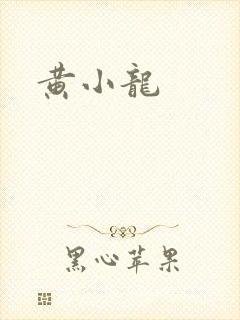 黄小龍
黑心苹果